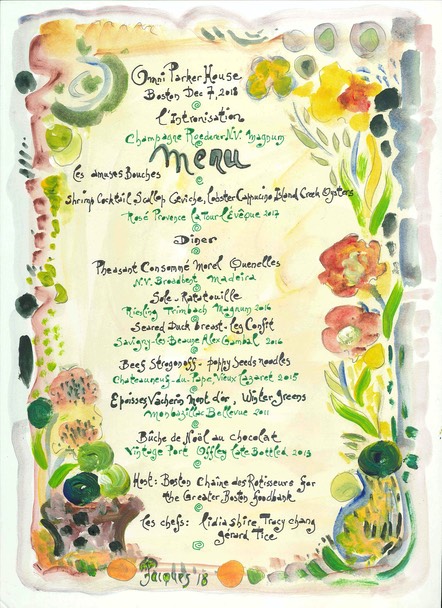 Omni Parker House
Boston Dec 7, 2018
L'intronisation
Champagne Roederer N.V. Magnum
Menu
Les amuses Bouches
Shrimp Cocktail, Scallop Ceviche, Lobster Cappucino, Island Creek Oysters
Rosé Provence La Tour L'Évêque 2017
Diner
Pheasant Consommé Morel Quenelles
N.V. Broadbent Madeira
Sole - Ratatouille
Riesling Trimbach Magnum 2016
Seared Duck breast - Leg Confit
Savigny-les Beaune Alex Gambal 2016
Beef Strogonoff - poppy Seeds noodles
Chateauneuf-du-Pape Vieux Lazaret 2015
Epoisses, Vacherin Mont d'or, Winter greens
Monbazillac Bellevue 2011
Bûche de Noël au chocolat
Vintage Port Offley Late Bottled 2013
Host: Boston Chaine des Rotisseurs for
the Greater Boston foodbank
Les chefs: Lidia Shire, Tracy Chang
Gerard Tice
Jacques 18